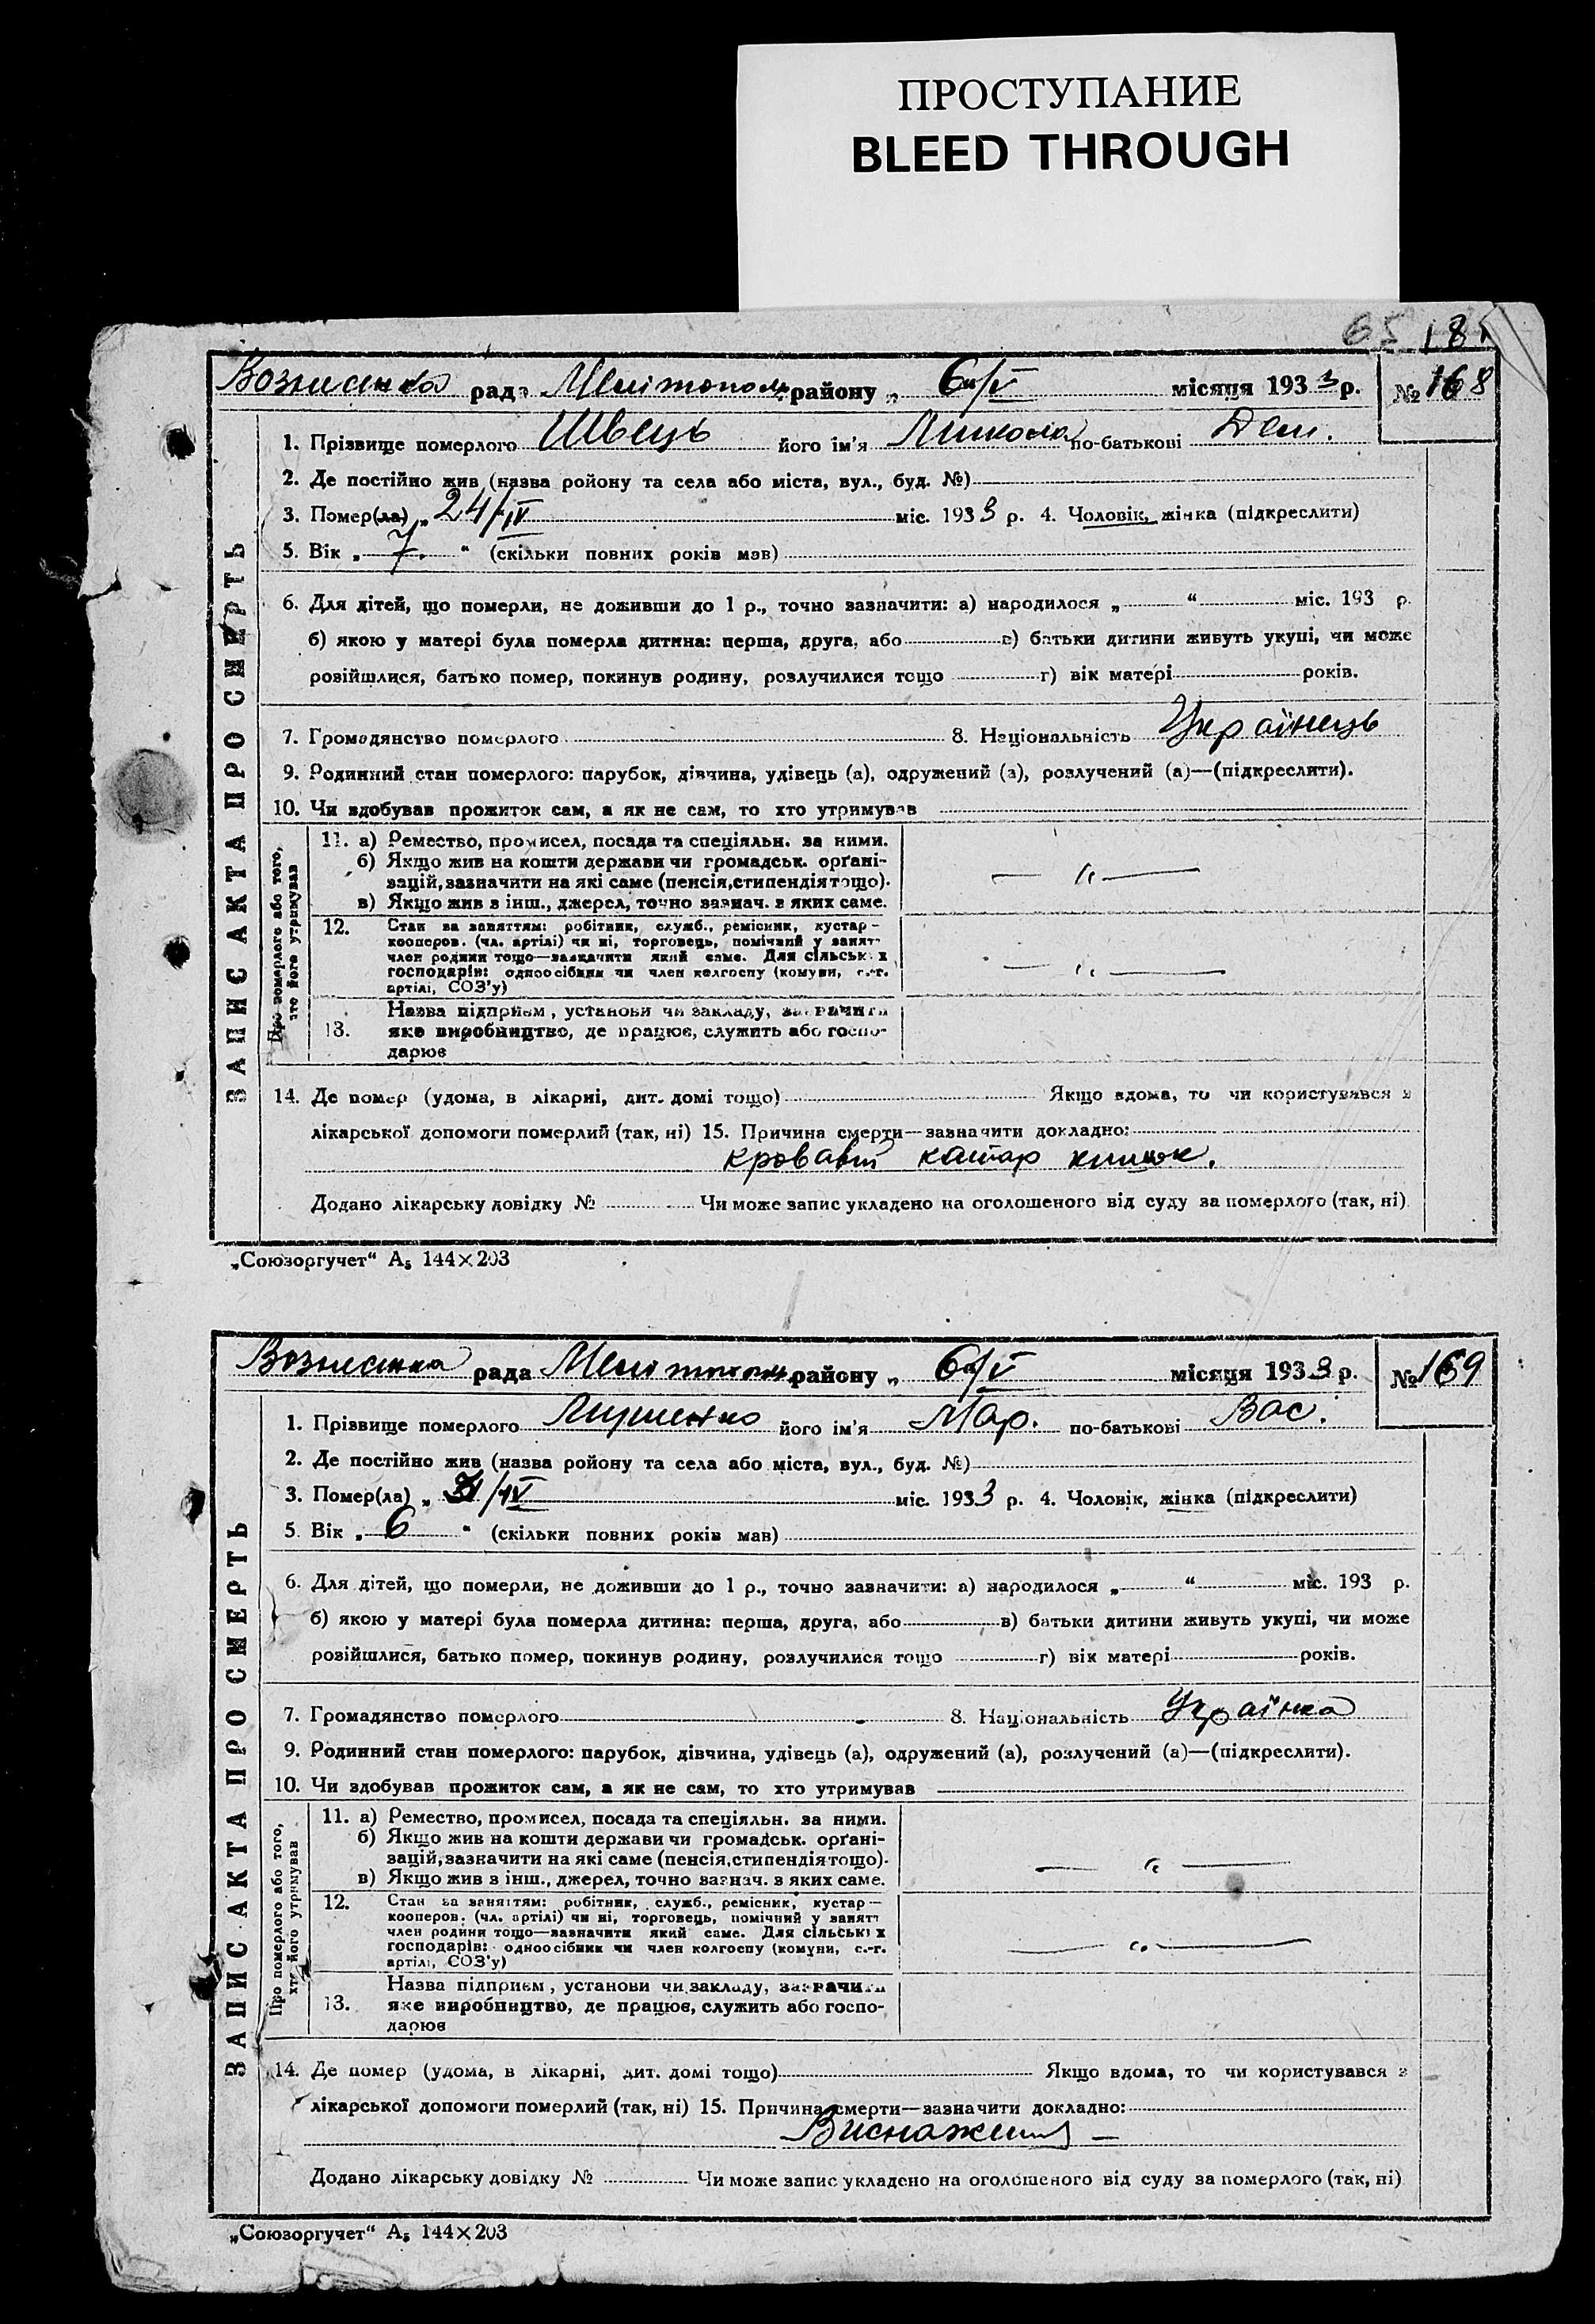 ПРОСТУПАНИЕ
BLEED THROUGH
65 18
Вознесенка рада Мелітополь району „ 6/V місяця 1933 р. № 168
1. Прізвище померлого Швець його ім'я Микола по-батькові Дем.
2. Де постійно жив (назва ройону та села або міста, вул., буд. №)
3. Помер(ла) „ 24/IV міс. 1933 р. 4. Чоловік, жінка (підкреслити)
5. Вік „ 7. “ (скільки повних років мав)
6. Для дітей, що померли, не доживши до 1 р., точно зазначити: а) народилося „ “ міс. 193 р.
б) якою у матері була померла дитина: перша, друга, або в) батьки дитини живуть укупі, чи може
розійшлися, батько помер, покинув родину, розлучилися тощо г) вік матері років.
7. Громадянство померлого 8. Національність Українець
9. Родинний стан померлого: парубок, дівчина, удівець (а), одружений (а), розлучений (а)—(підкреслити).
10. Чи здобував прожиток сам, а як не сам, то хто утримував
ЗАПИС АКТА ПРО СМЕРТЬ
Про померлого або того,
хто його утримував
11. а) Ремество, промисел, посада та спеціяльн. за ними.
б) Якщо жив на кошти держави чи громадськ. орґані-
зацій, зазначити на які саме (пенсія, стипендія тощо).
в) Якщо жив з інш., джерел, точно зазнач. з яких саме.
— „ —
12. Стан за заняттям: робітник, служб., ремісник, кустар—
кооперов. (чл. артілі) чи ні, торговець, помічний у занятт
член родини тощо—зазначити який саме. Для сільських
господарів: одноосібник чи член колгоспу (комуни, с.-г.
артілі, СОЗ'у)
— „ —
Назва підприєм, установи чи закладу, зазначити
13. яке виробництво, де працює, служить або госпо-
дарює
14. Де помер (удома, в лікарні, дит. домі тощо) Якщо вдома, то чи користувався з
лікарської допомоги померлий (так, ні) 15. Причина смерти—зазначити докладно:
кровавий катар кишок.
Додано лікарську довідку № Чи може запис укладено на оголошеного від суду за померлого (так, ні)
„Союзоргучет“ А₅ 144×203
Вознесенка рада Мелітополь району „ 6/V місяця 1933 р. № 169
1. Прізвище померлого його ім'я Мар. по-батькові Вас.
2. Де постійно жив (назва ройону та села або міста, вул., буд. №)
3. Помер(ла) „ /IV міс. 1933 р. 4. Чоловік, жінка (підкреслити)
5. Вік „ 6 “ (скільки повних років мав)
6. Для дітей, що померли, не доживши до 1 р., точно зазначити: а) народилося „ “ міс. 193 р.
б) якою у матері була померла дитина: перша, друга, або в) батьки дитини живуть укупі, чи може
розійшлися, батько помер, покинув родину, розлучилися тощо г) вік матері років.
7. Громадянство померлого 8. Національність Українка
9. Родинний стан померлого: парубок, дівчина, удівець (а), одружений (а), розлучений (а)—(підкреслити).
10. Чи здобував прожиток сам, а як не сам, то хто утримував
ЗАПИС АКТА ПРО СМЕРТЬ
Про померлого або того,
хто його утримував
11. а) Ремество, промисел, посада та спеціяльн. за ними.
б) Якщо жив на кошти держави чи громадськ. орґані-
зацій, зазначити на які саме (пенсія, стипендія тощо).
в) Якщо жив з інш., джерел, точно зазнач. з яких саме.
— „ —
12. Стан за заняттям: робітник, служб., ремісник, кустар—
кооперов. (чл. артілі) чи ні, торговець, помічний у занятт
член родини тощо—зазначити який саме. Для сільських
господарів: одноосібник чи член колгоспу (комуни, с.-г.
артілі, СОЗ'у)
— „ —
Назва підприєм, установи чи закладу, зазначити
13. яке виробництво, де працює, служить або госпо-
дарює
14. Де помер (удома, в лікарні, дит. домі тощо) Якщо вдома, то чи користувався з
лікарської допомоги померлий (так, ні) 15. Причина смерти—зазначити докладно:
Виснаження —
Додано лікарську довідку № Чи може запис укладено на оголошеного від суду за померлого (так, ні)
„Союзоргучет“ А₅ 144×203